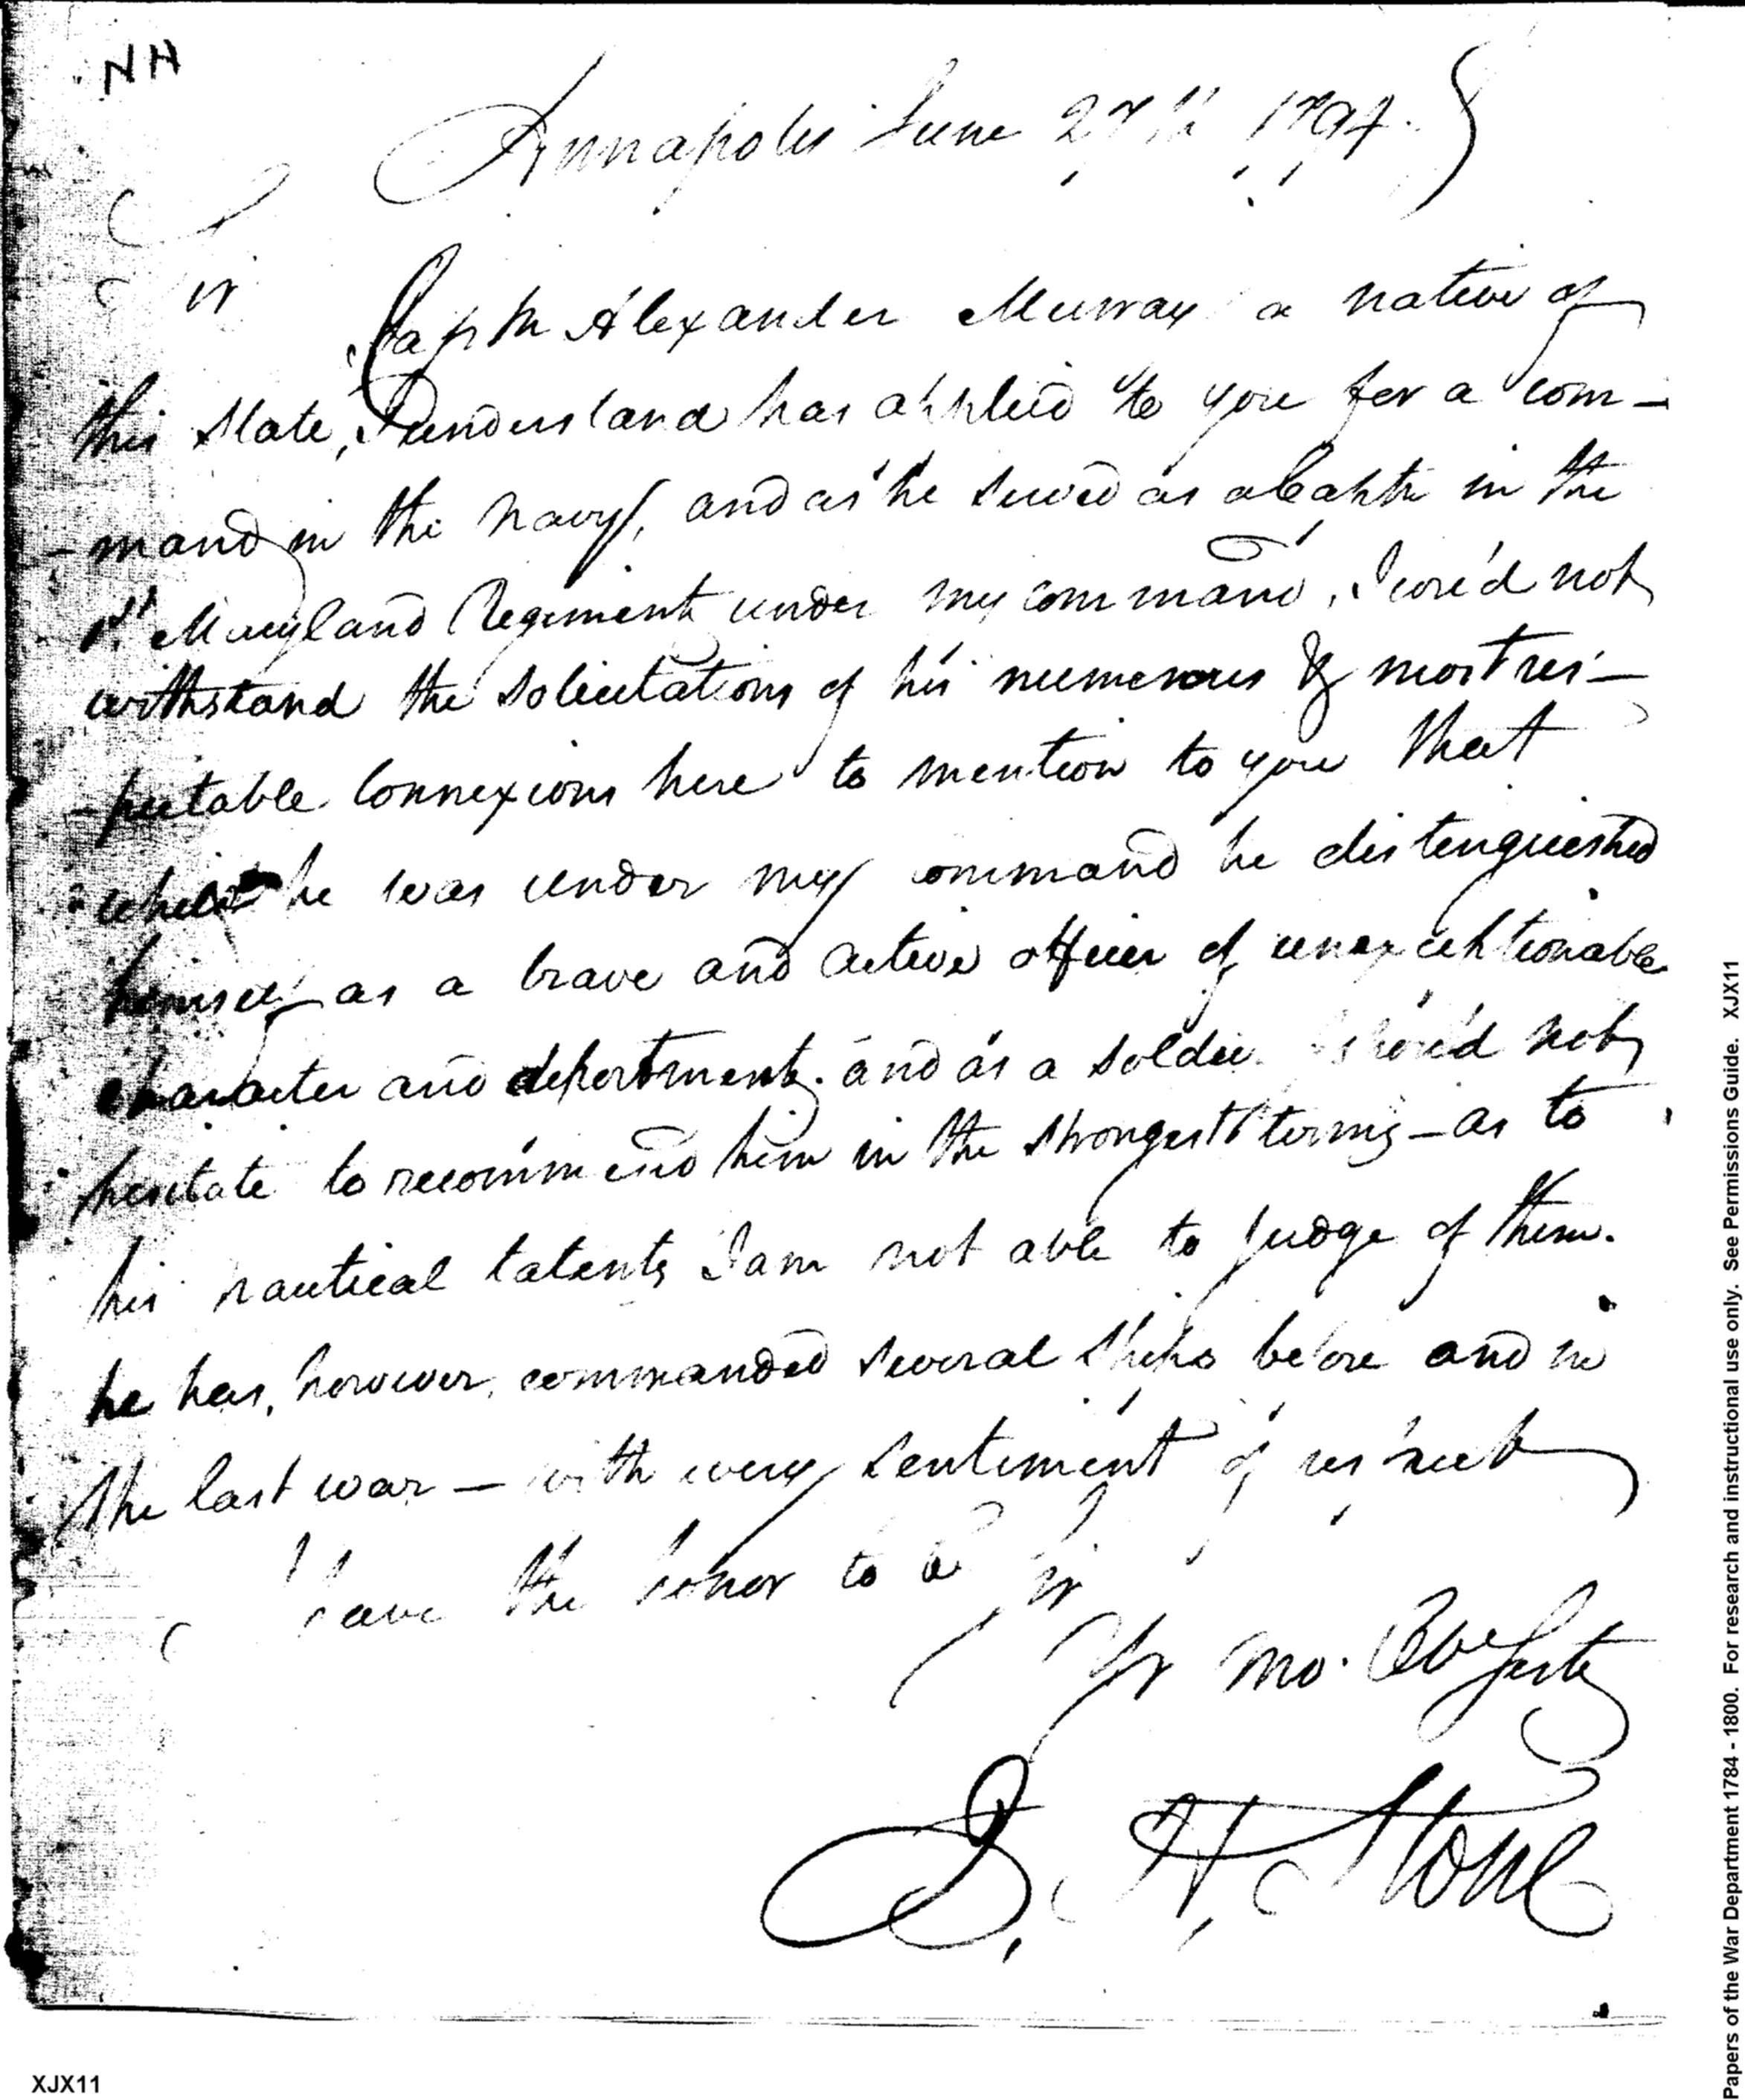 NH
Annapolis June 27th 1794.
Sir
Captn Alexander Murray a native of
this State, I understand has applied to you for a com-
-mand in the navy, and as he served as a Captn in the
1st Maryland Regiment under my command, I cou'd not
withstand the solicitations of his numerous & most res-
-pectable Connexions here to mention to you that
whilst he was under my command he distinguished
himself as a brave and active officer of unexceptionable
character and deportment. and as a soldier I shou'd not
hesitate to recommend him in the strongest terms - as to
his nautical talents I am not able to judge of them.
he has, however, commanded several ships before and in
the last war - with every sentiment of respect
I have the honor to be Sir
Yr mo. Obe Servt
J. H. Stone
XJX11
Papers of the War Department 1784 - 1800. For research and instructional use only. See Permissions Guide. XJX11